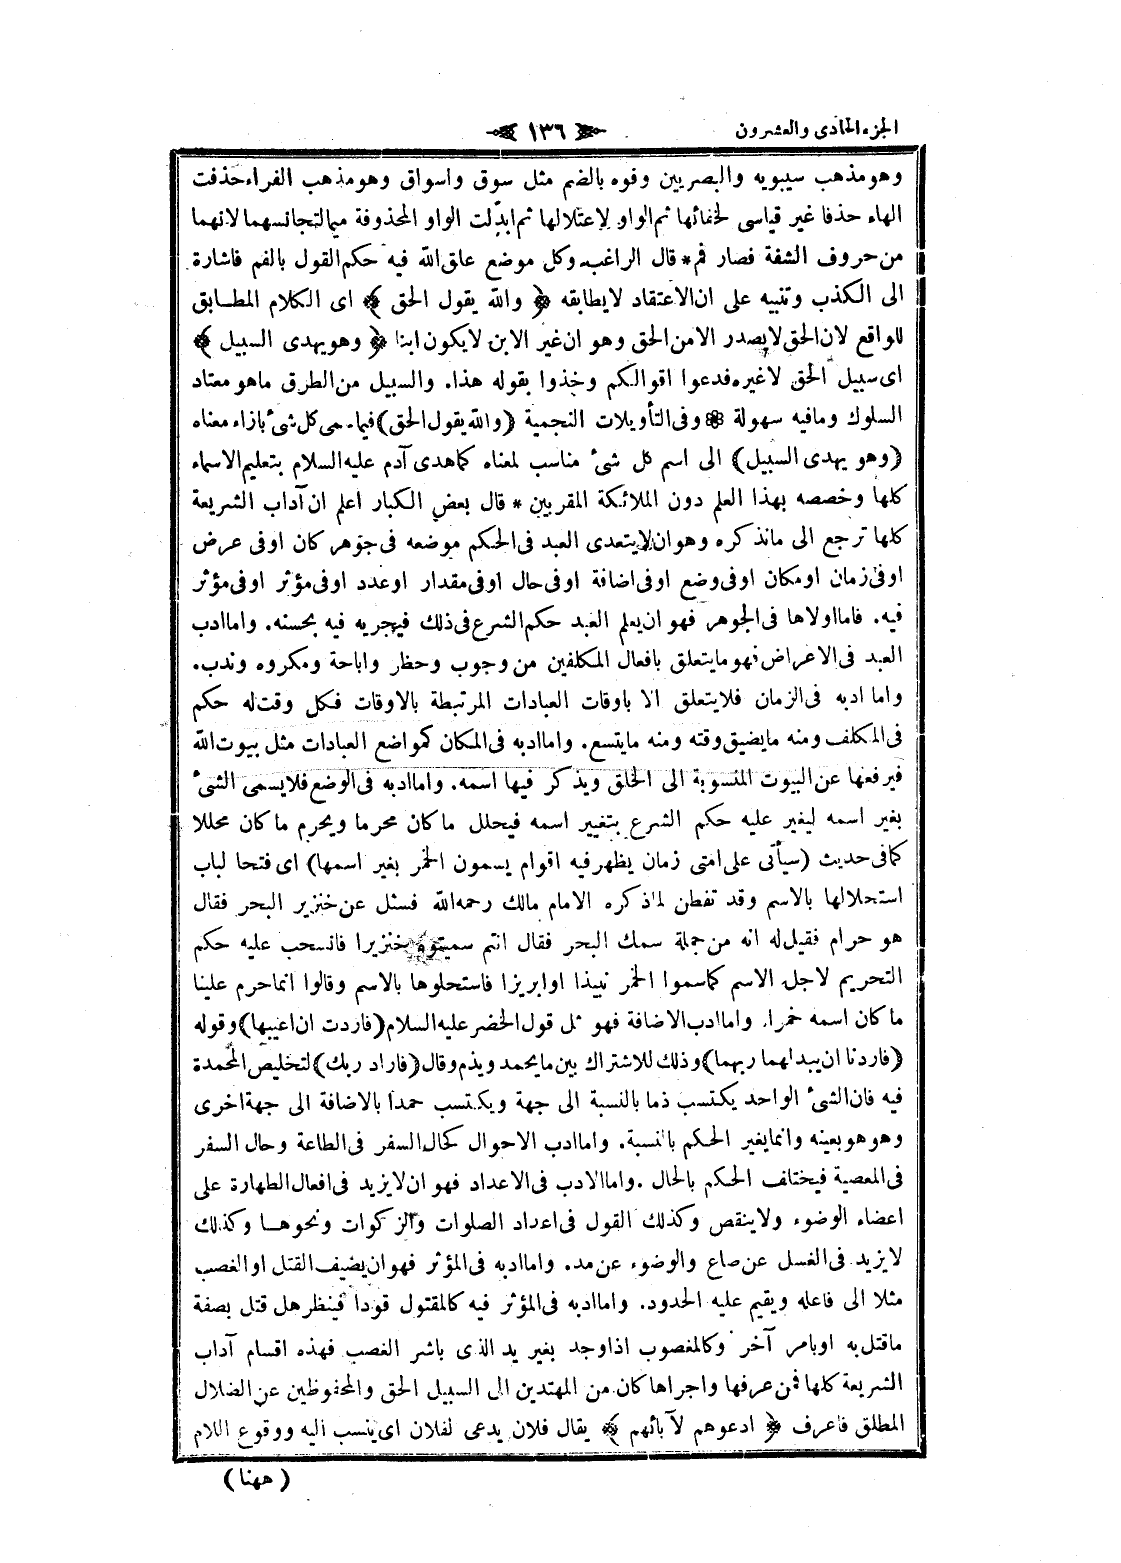 الجزء الحادى والعشرون
١٣٦
وهو مذهب سيبويه والبصريين وفوه بالضم مثل سوق واسواق وهو مذهب الفراء حذفت
الهاء حذفا غير قياسى لخفائها ثم الواو لاعتلالها ثم ابدلت الواو المحذوفة ميما لتجانسهما لانهما
من حروف الشفة فصار فم * قال الراغب وكل موضع علق الله فيه حكم القول بالفم فاشارة
الى الكذب وتنبيه على ان الاعتقاد لايطابقه ﴿ والله يقول الحق ﴾ اى الكلام المطابق
للواقع لان الحق لايصدر الامن الحق وهو ان غير الابن لايكون ابنا ﴿ وهو يهدى السبيل ﴾
اى سبيل الحق لاغيره فدعوا اقوالكم وخذوا بقوله هذا. والسبيل من الطرق ماهو معتاد
السلوك ومافيه سهولة ❁ وفى التأويلات النجمية (والله يقول الحق) فيما سمى كل شئ بازاء معناه
(وهو يهدى السبيل) الى اسم كل شئ مناسب لمعناه كما هدى آدم عليه السلام بتعليم الاسماء
كلها وخصصه بهذا العلم دون الملائكة المقربين * قال بعض الكبار اعلم ان آداب الشريعة
كلها ترجع الى مانذكره وهو ان لايتعدى العبد فى الحكم موضعه فى جوهر كان اوفى عرض
اوفى زمان اومكان اوفى وضع اوفى اضافة اوفى حال اوفى مقدار اوعدد اوفى مؤثر اوفى مؤثر
فيه. فاما اولاها فى الجوهر فهو ان يعلم العبد حكم الشرع فى ذلك فيجريه فيه بحسنه. واما ادب
العبد فى الاعراض فهو مايتعلق بافعال المكلفين من وجوب وحظر واباحة ومكروه وندب.
واما ادبه فى الزمان فلايتعلق الا باوقات العبادات المرتبطة بالاوقات فكل وقت له حكم
فى المكلف ومنه مايضيق وقته ومنه مايتسع. واما ادبه فى المكان كمواضع العبادات مثل بيوت الله
فيرفعها عن البيوت المنسوبة الى الخلق ويذكر فيها اسمه. واما ادبه فى الوضع فلايسمى الشئ
بغير اسمه ليغير عليه حكم الشرع بتغيير اسمه فيحلل ماكان محرما ويحرم ماكان محللا
كما فى حديث (سيأتى على امتى زمان يظهر فيه اقوام يسمون الخمر بغير اسمها) اى فتحا لباب
استحلالها بالاسم وقد تفطن لماذكره الامام مالك رحمه الله فسئل عن خنزير البحر فقال
هو حرام فقيل له انه من جملة سمك البحر فقال انتم سميتموه خنزيرا فانسحب عليه حكم
التحريم لاجل الاسم كما سموا الخمر نبيذا اوابريزا فاستحلوها بالاسم وقالوا انما حرم علينا
ماكان اسمه خمرا. واما ادب الاضافة فهو مثل قول الخضر عليه السلام (فاردت ان اعيبها) وقوله
(فاردنا ان يبدلهما ربهما) وذلك للاشتراك بين مايحمد ويذم وقال (فاراد ربك) لتخليص المحمدة
فيه فان الشئ الواحد يكتسب ذما بالنسبة الى جهة ويكتسب حمدا بالاضافة الى جهة اخرى
وهو هو بعينه وانما يغير الحكم بالنسبة. واما ادب الاحوال كحال السفر فى الطاعة وحال السفر
فى المعصية فيختلف الحكم بالحال. واما الادب فى الاعداد فهو ان لايزيد فى افعال الطهارة على
اعضاء الوضوء ولاينقص وكذلك القول فى اعداد الصلوات والزكوات ونحوها وكذلك
لايزيد فى الغسل عن صاع والوضوء عن مد. واما ادبه فى المؤثر فهو ان يضيف القتل اوالغصب
مثلا الى فاعله ويقيم عليه الحدود. واما ادبه فى المؤثر فيه كالمقتول قودا فينظر هل قتل بصفة
ماقتل به اوبامر آخر وكالمغصوب اذاوجد بغير يد الذى باشر الغصب فهذه اقسام آداب
الشريعة كلها فمن عرفها واجراها كان من المهتدين الى السبيل الحق والمحفوظين عن الضلال
المطلق فاعرف ﴿ ادعوهم لآبائهم ﴾ يقال فلان يدعى لفلان اى ينسب اليه ووقوع اللام
(ههنا)